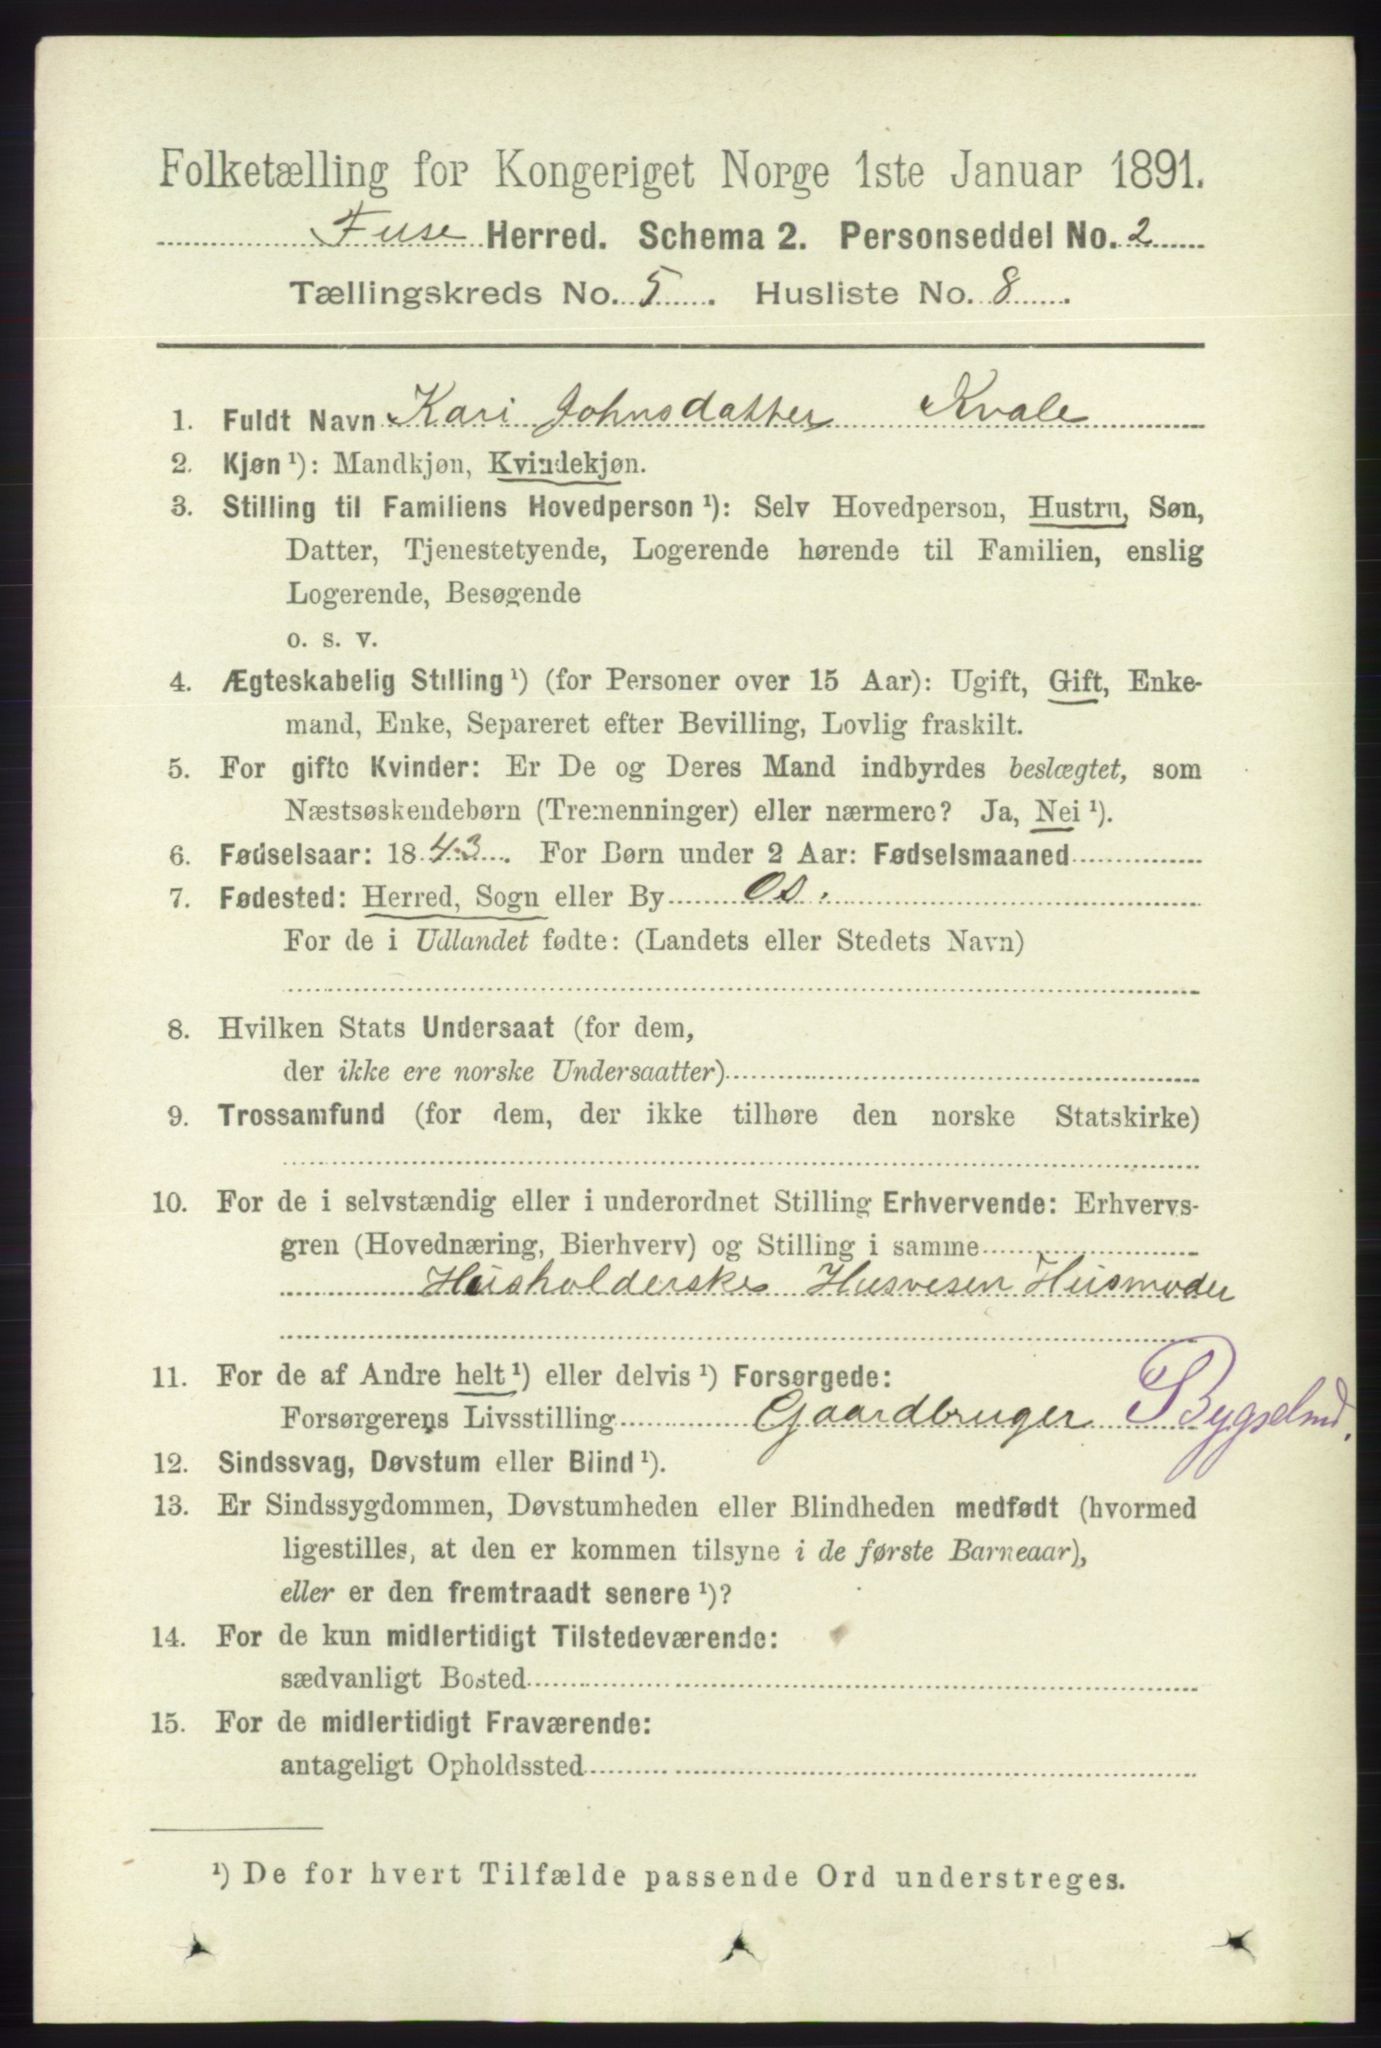 Folketælling for Kongeriget Norge 1ste Januar 1891.
Fuse Herred. Schema 2. Personseddel No. 2
Tællingskreds No. 5. Husliste No. 8.
1. Fuldt Navn Kari Johnsdatter Kvale
2. Kjøn ¹): Mandkjøn, Kvindekjøn.
3. Stilling til Familiens Hovedperson ¹): Selv Hovedperson, Hustru, Søn,
Datter, Tjenestetyende, Logerende hørende til Familien, enslig
Logerende, Besøgende
o. s. v.
4. Ægteskabelig Stilling ¹) (for Personer over 15 Aar): Ugift, Gift, Enke-
mand, Enke, Separeret efter Bevilling, Lovlig fraskilt.
5. For gifte Kvinder: Er De og Deres Mand indbyrdes beslægtet, som
Næstsøskendebørn (Tremenninger) eller nærmere? Ja, Nei ¹).
6. Fødselsaar: 1843. For Børn under 2 Aar: Fødselsmaaned
7. Fødested: Herred, Sogn eller By Os.
For de i Udlandet fødte: (Landets eller Stedets Navn)
8. Hvilken Stats Undersaat (for dem,
der ikke ere norske Undersaatter)
9. Trossamfund (for dem, der ikke tilhøre den norske Statskirke)
10. For de i selvstændig eller i underordnet Stilling Erhvervende: Erhvervs-
gren (Hovednæring, Bierhverv) og Stilling i samme
Husholderske Husvesen Husmoder
11. For de af Andre helt ¹) eller delvis ¹) Forsørgede:
Forsørgerens Livsstilling Gaardbruger Bygselmd.
12. Sindssvag, Døvstum eller Blind ¹).
13. Er Sindssygdommen, Døvstumheden eller Blindheden medfødt (hvormed
ligestilles, at den er kommen tilsyne i de første Barneaar),
eller er den fremtraadt senere ¹)?
14. For de kun midlertidigt Tilstedeværende:
sædvanligt Bosted
15. For de midlertidigt Fraværende:
antageligt Opholdssted
¹) De for hvert Tilfælde passende Ord understreges.